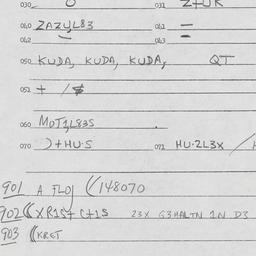 030 031 Z+UK
040 ZAZYL83 041 —
042 043
050 KUDA, KUDA, KUDA, QT
051 + /
060 MOT1L83S
070 )+HU·S 071 HU·2L3X /
901 A FLOJ ((148070
902 ((XR1S+ C+1S 23X G3HALTN 1N D3
903 ((KRET